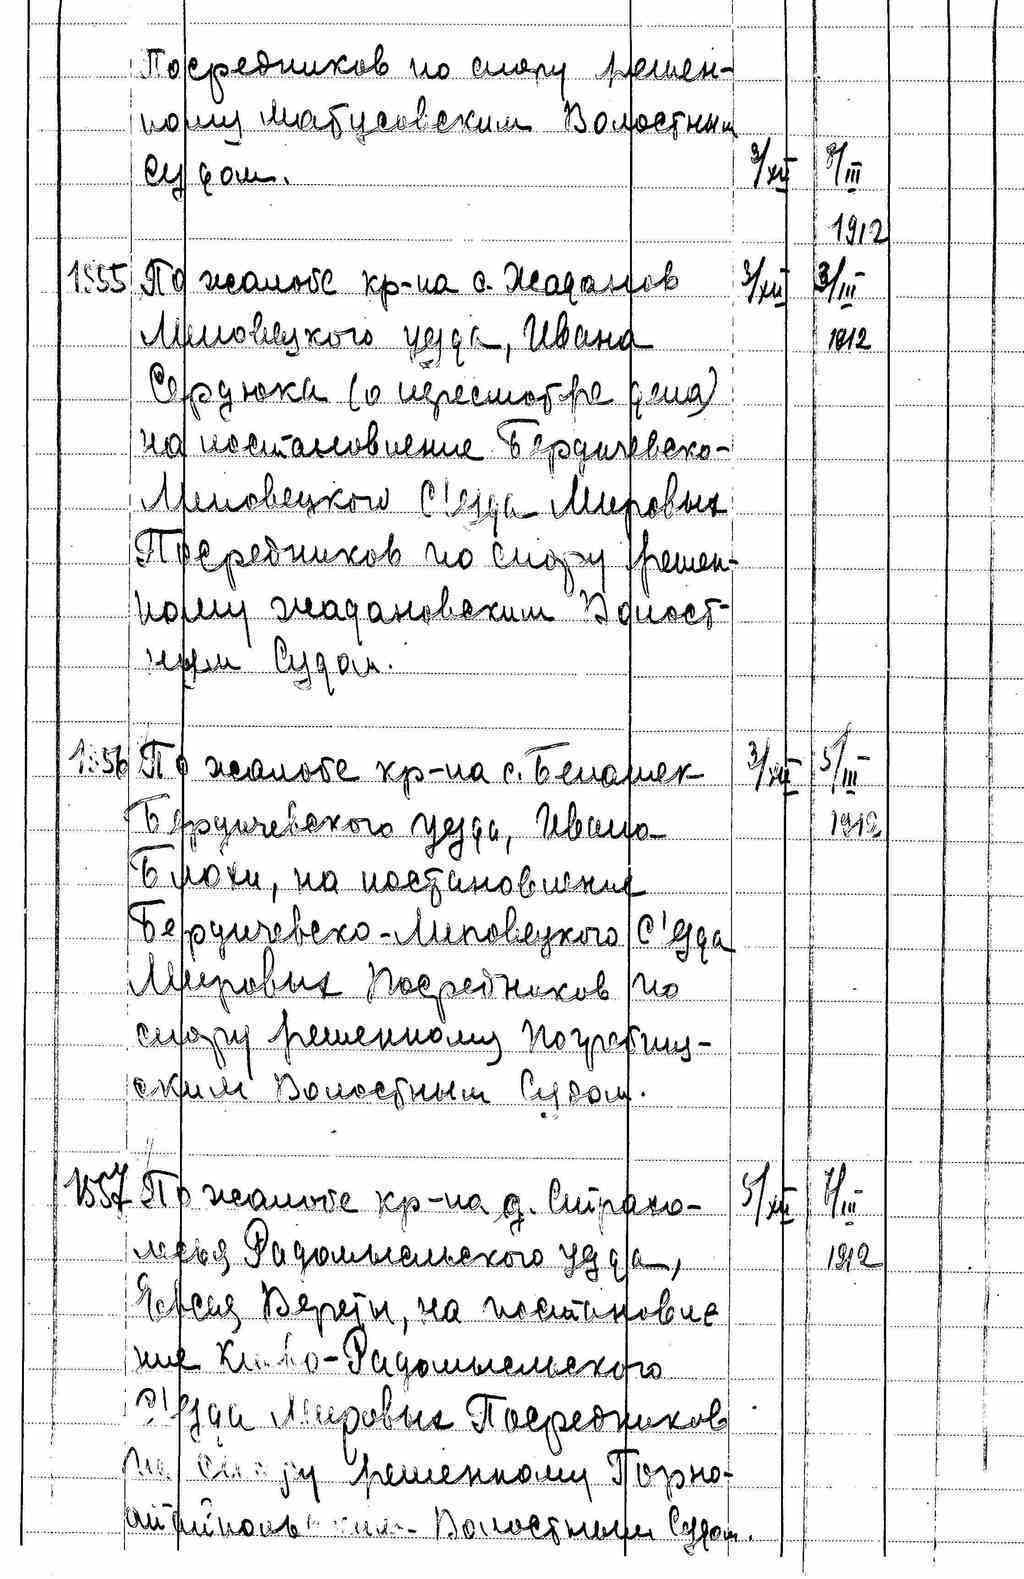 Посредников по спору решен-
ному Матусовским Волостным
Судом. 3/XII 8/III
1912
1555 По жалобе кр-на с. Жаданов 3/XII 3/III
Липовецкого уезда, Ивана 1912
Сердюка (о пересмотре дела)
на постановление Бердичевско-
Липовецкого С'езда Мировых
Посредников по спору решен-
ному Жадановским Волост-
ным Судом.
1556 По жалобе кр-на с. Белашек 3/XII 5/III
Бердичевского уезда, Ивана 1912
Блохи, на постановление
Бердичевско-Липовецкого С'езда
Мировых Посредников по
спору решенному Погребищ-
ским Волостным Судом.
1557 По жалобе кр-на д. Страхо- 5/XII 7/III
лесья Радомысльского уезда, 1912
Евсея Вереты, на постановле
ние Киево-Радомысльского
С'езда Мировых Посредников
по спору решенному Горно-
Волостным Судом.